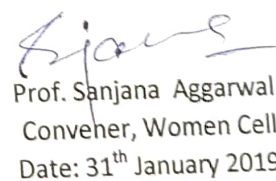 Prof. Sanjana Aggarwal
Convener, Women Cell
Date: 31th January 2019